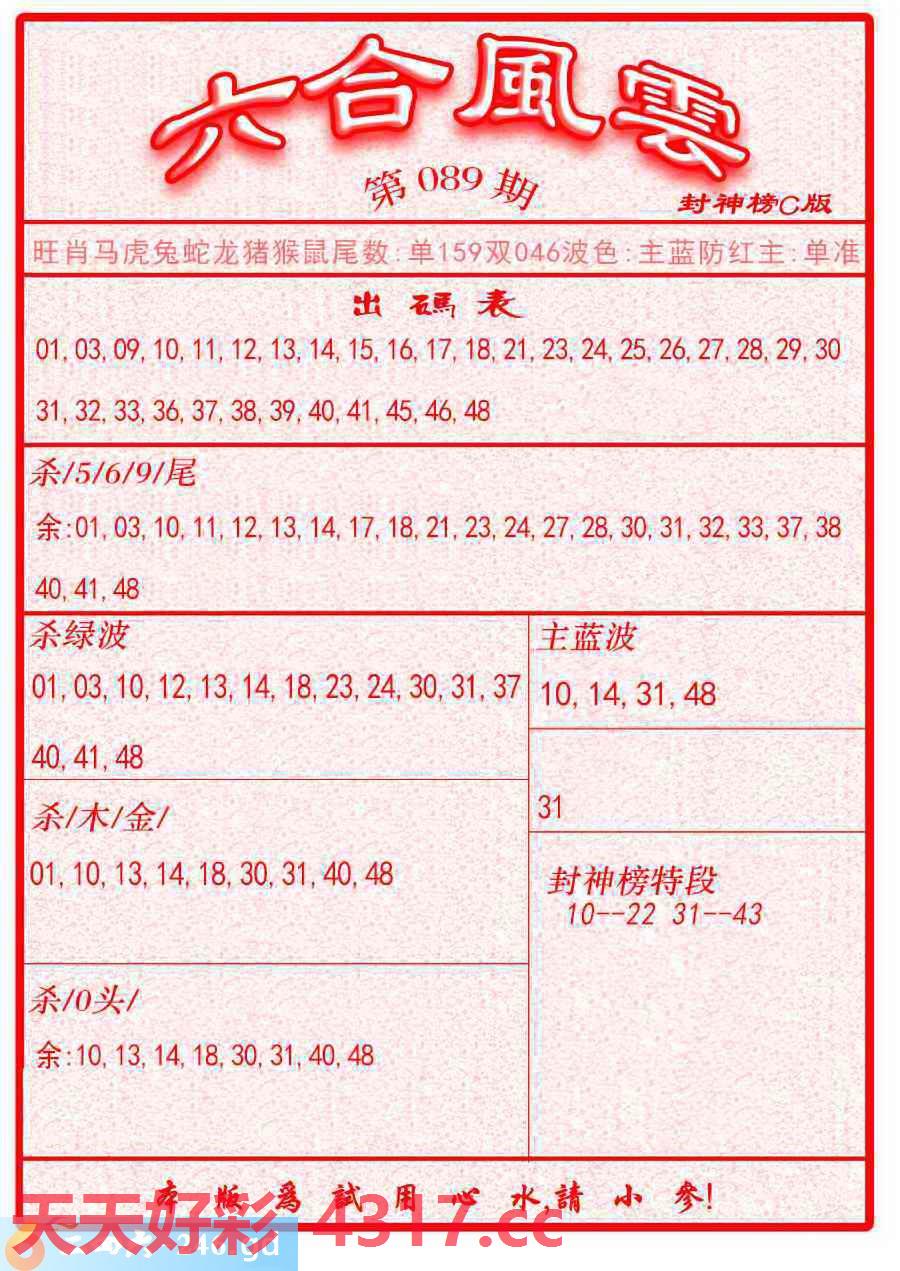 六合風雲
第089期
封神榜C版
旺肖马虎兔蛇龙猪猴鼠尾数:单159双046波色:主蓝防红主:单准
出碼表
01,03,09,10,11,12,13,14,15,16,17,18,21,23,24,25,26,27,28,29,30
31,32,33,36,37,38,39,40,41,45,46,48
杀/5/6/9/尾
余:01,03,10,11,12,13,14,17,18,21,23,24,27,28,30,31,32,33,37,38
40,41,48
杀绿波
01,03,10,12,13,14,18,23,24,30,31,37
40,41,48
主蓝波
10,14,31,48
31
杀/木/金/
01,10,13,14,18,30,31,40,48
封神榜特段
10--22 31--43
杀/0头/
余:10,13,14,18,30,31,40,48
本版爲試用心水,請小參!
天天好彩 4317.cc
246.gd